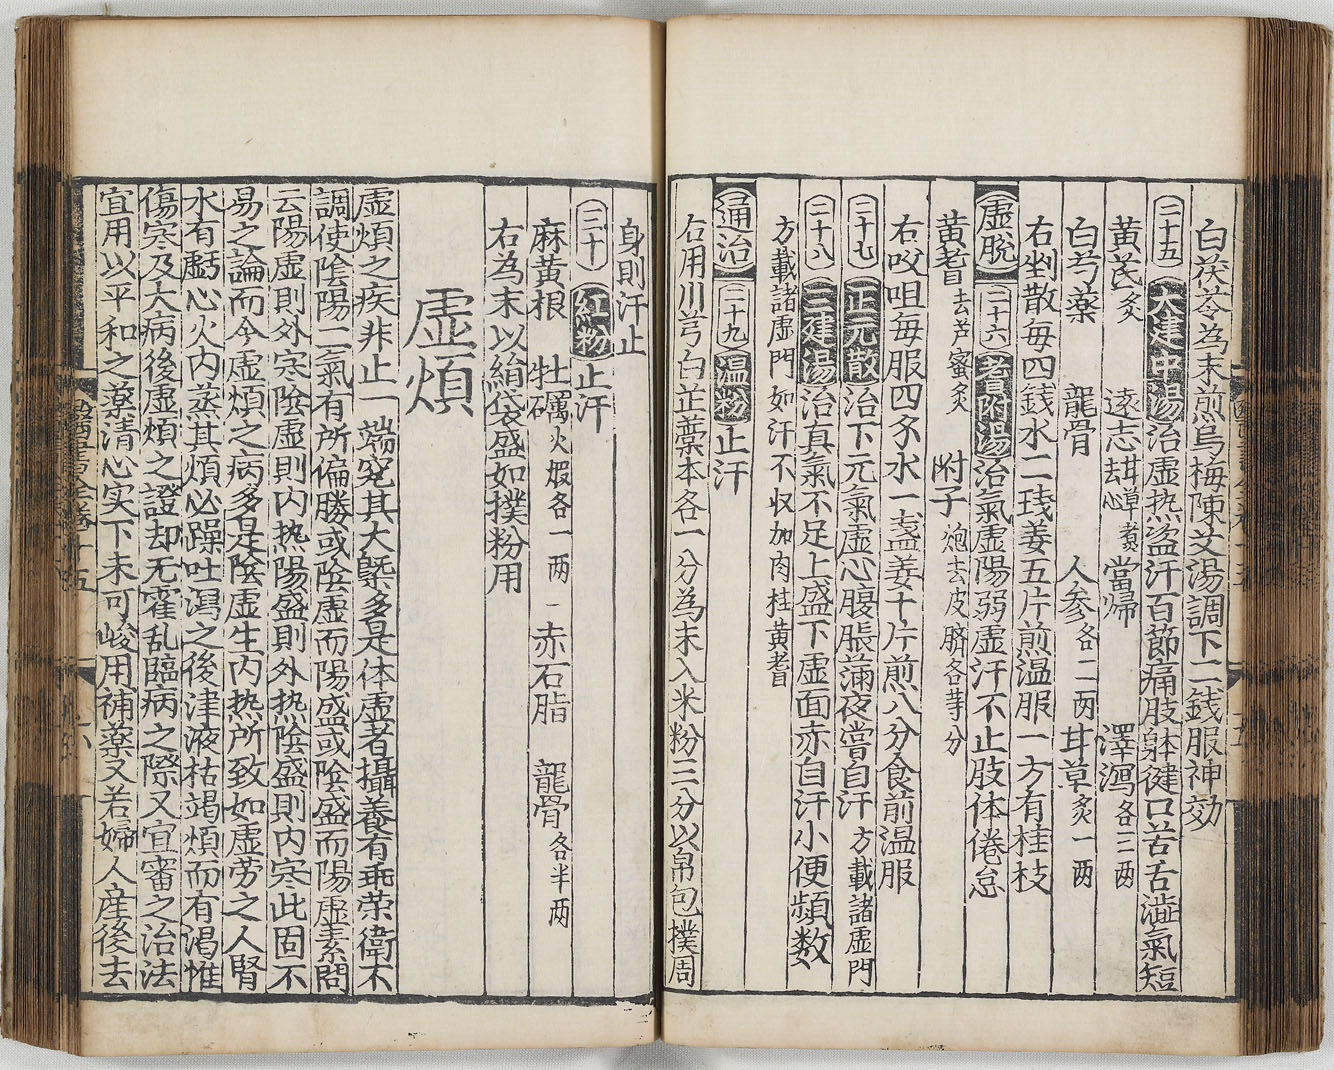 白茯苓為末煎烏梅陳艾湯調下二錢服神効
二十五 大建中湯 治虛热盗汗百節痛肢躰倦口苦舌澁氣短
黄芪炙 遠志去心甘草煮 當㱕 澤瀉各三两
白芍藥 龍骨 人参各二两 甘草炙一两
右㕮散每四錢水二琖姜五片煎温服一方有桂枝
虛脱 二十六 耆附湯 治氣虛陽弱虛汗不止肢体倦怠
黄耆去芦蜜炙 附子炮去皮臍各等分
右㕮咀每服四錢水一盞姜十片煎八分食前温服
二十七 正元散 治下元氣虛心腹脹滿夜嘗自汗方載諸虛門
二十八 二建湯 治真氣不足上盛下虛面赤自汗小便頻数
方載諸虛門如汗不収加肉桂黄耆
通治 二十九 温粉 止汗
右用川芎白芷藁本各一分為末入米粉三分以帛包撲周
身則汗止
三十 紅粉 止汗
麻黄根 牡礪火煆各一两 赤石脂 龍骨各半两
右為末以絹袋盛如撲粉用
虛煩
虛煩之疾非止一端究其大槩多是体虛者攝養有乖荣衛不
調使隂陽二氣有所偏勝或隂虛而陽盛或隂盛而陽虛素問
云陽虛則外寒隂虛則内热陽盛則外热隂盛則内寒此固不
易之論而今虛煩之病多是隂虛生内热所致如虛劳之人腎
水有虧心火内蒸其煩必躁吐瀉之後津液枯竭煩而有渴惟
傷寒及大病後虛煩之證却无霍乱臨病之際又宜審之治法
宜用以平和之藥清心实下未可峻用補藥又若婦人産後去